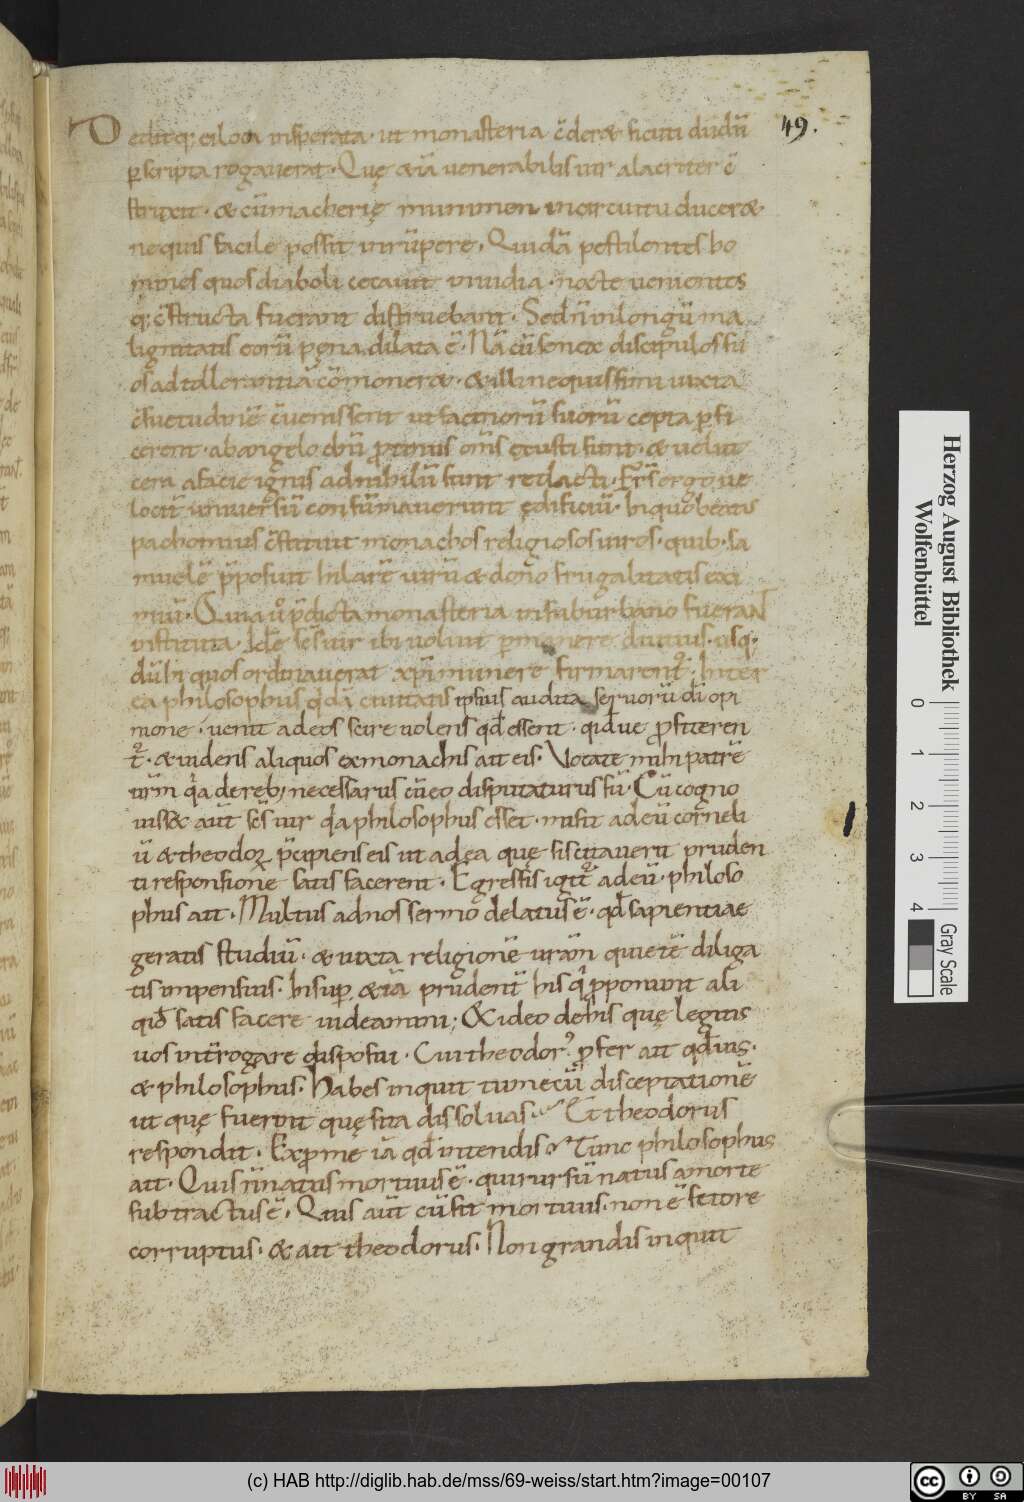 Deditq; ei loca insperata · ut monasteria c̄deræ sicuti dudū
p̲scripta rogauerat · Quę & iā uenerabilis uir alacriter c̄
struxit · & cū maceherię munimen in circuitu duceræ
ne quis facile possit inrūpere · Quidā pestilentes ho
mines quos diaboli cecauit inuidia · nocte uenientes
q; c̄structa fuerant distruebant · Sed n̄ in longū ma
lignitatis eorū pęna dilata ē · Nā cū senex discipulos su
os ad tollerantiā cōmoneræ · & illi nequissimi iuxta
c̄suetudinē c̄uenissent ut facinorū suorū cepta p̲fi
cerent · ab angelo dn̄i protinus om̄s exusti sunt · & uelut
cera a facie ignis ad nihilū sunt redacti · Fr̄s ergo ue
lociť uniuersū consūmauerunt ędificiū · In quo beatus
pachomius c̄stituit monachos religiosos uiros · quib · sa
muelē p̄posuit hilarē uirū & dono frugalitatis exi
miū · Quia u͛o p̄dicta monasteria in suburbano fuerant
instituta · Idē sc̄s uir ibi uoluit p̲manere diutius · usq;
dū hi quos ordinauerat xp̄i munere firmarent᷑ · Inter
ea philosophus q̇dā ciuitatis ipsius audita seruorū dī opi
nione · uenit ad eos scire uolens qđ essent · qidue profiteren
t᷑ · & uidens aliquos ex monachis ait eis · Vocate mihi patrē
ur̄m q̇a de reb; necessariis cū eo disputaturus sū · Cū cogno
uiss& aūt sc̄s uir q̇a philosophus esset · misit ad eū corneli
ū & theodorꝝ p̄cipiens eis ut ad ea quę siscitauerit pruden
ti responsione satis facerent · Egressis igit᷑ ad eū · philoso
phus ait · Multus ad nos sermo delatus ē · qđ sapientiae
geratis studiū · & iuxta religionē uram̄ quietē diliga
tis inpensius · Insup̲ & iā prudent᷑ his q̇ proponunt ali
qiđ satis facere uideamini; & ideo de his quę legitis
uos int̄rogare disposui · Cui theodor᷒ profer ait qđ uis ·
& philosophus · Habes inquit tu mecū disceptationē
ut quę fuerint quęsita dissoluas · Et theodorus
respondit · Exprome iā qđ intendis · Tunc philosophus
ait · Quis n̄ natus mortuus ē · qui rursū natus a morte
subtractus ē · Quis aūt cū sit mortuus · non ē fetore
corruptus · & ait theodorus · Non grandis inquit
49.
Herzog August Bibliothek
Wolfenbüttel
0 1 2 3 4
Gray Scale
(c) HAB http://diglib.hab.de/mss/69-weiss/start.htm?image=00107
cc BY SA